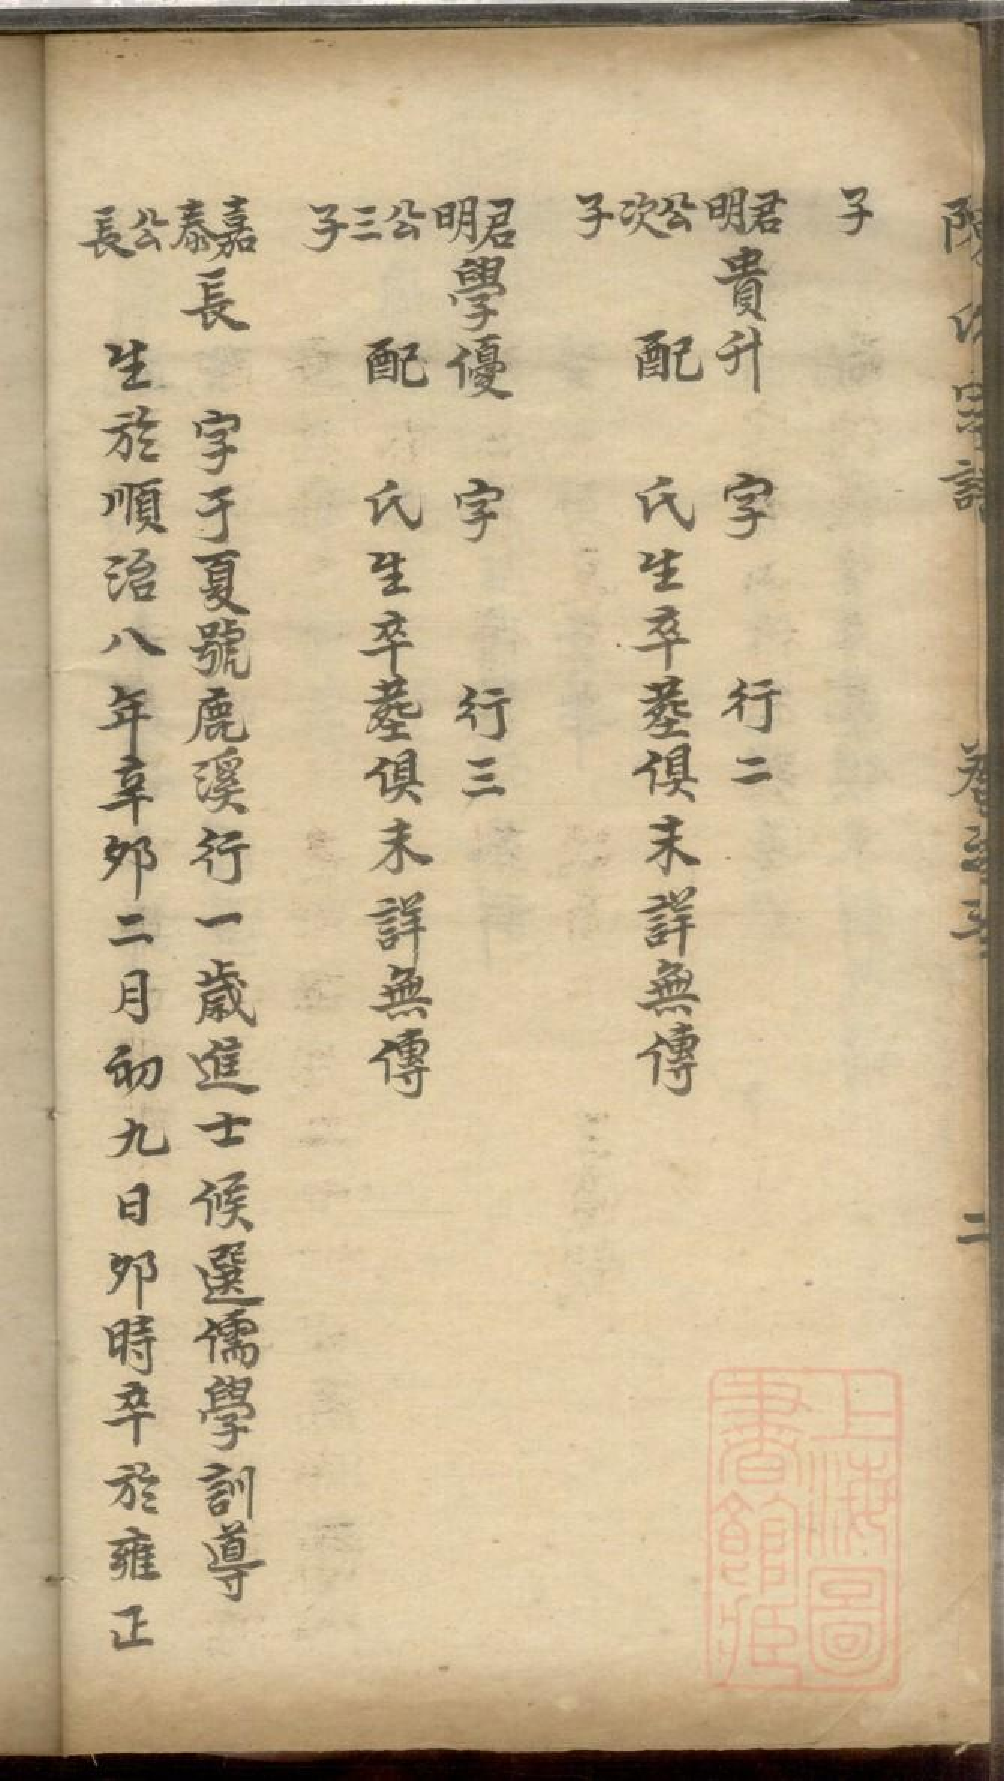 陳氏宗譜
二
子
君明公次子
貴升 字 行二
配 氏生卒塟俱未詳無傳
君明公三子
學優 字 行三
配 氏生卒塟俱未詳無傳
嘉泰公長
長 字于夏號鹿溪行一歲進士候選儒學訓導
生於順治八年辛卯二月初九日卯時卒於雍正
上海圖書館藏